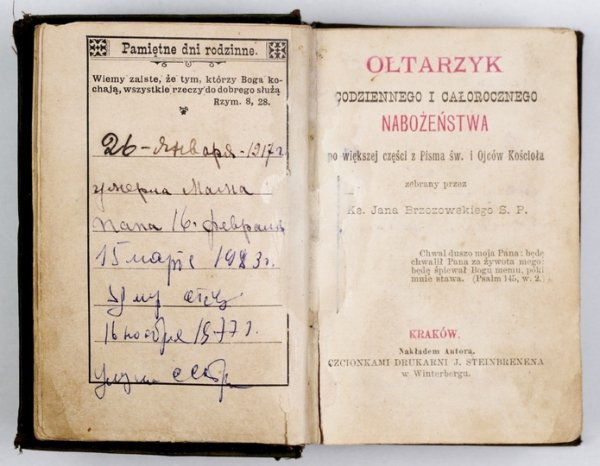 Pamiętne dni rodzinne.
Wiemy zaiste, że tym, którzy Boga ko-
chają, wszystkie rzeczy do dobrego służą
Rzym. 8, 28.
26 - января - 1917 г
умерла Мама
папа 16. февраля
15 марта
Умер отец
16 ноября 1977 г.
умерла сестра
OŁTARZYK
CODZIENNEGO I CAŁOROCZNEGO
NABOŻEŃSTWA
po większej części z Pisma św. i Ojców Kościoła
zebrany przez
Ks. Jana Brzozowskiego S. P.
Chwal duszo moja Pana: będę
chwalił Pana za żywota mego:
będę śpiewał Bogu memu, póki
mnie stawa. (Psalm 145, w. 2.)
KRAKÓW.
Nakładem Autora.
CZCIONKAMI DRUKARNI J. STEINBRENERA
w Winterbergu.